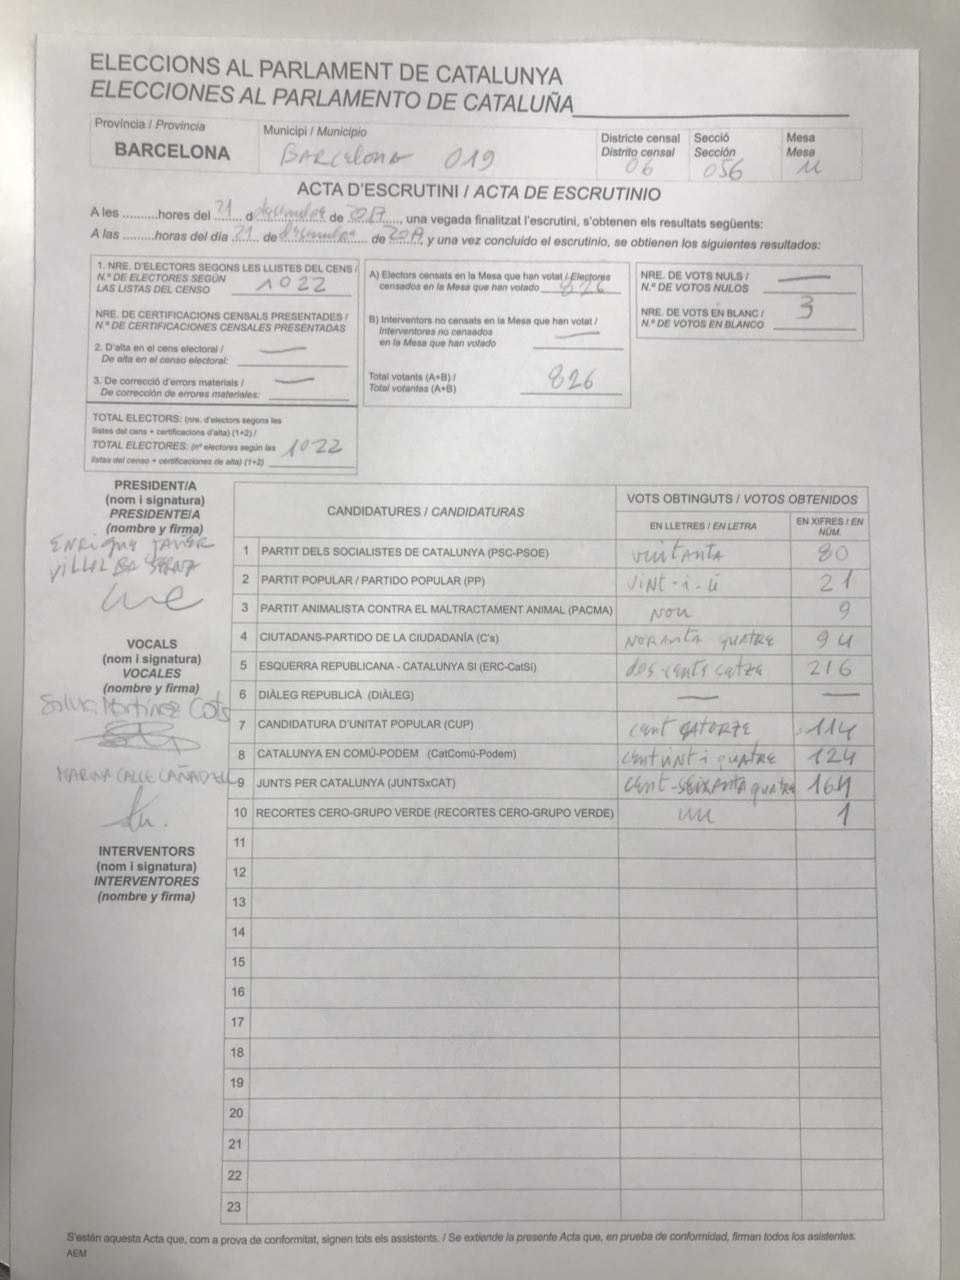 ELECCIONS AL PARLAMENT DE CATALUNYA
ELECCIONES AL PARLAMENTO DE CATALUÑA
Provincia / Provincia
BARCELONA
Municipi / Municipio
BARCELONA 019
Districte censal
Distrito censal
06
Secció
Sección
056
Mesa
Mesa
U
ACTA D'ESCRUTINI / ACTA DE ESCRUTINIO
A les ..........hores del 21 d desembre de 2017, una vegada finalitzat l'escrutini, s'obtenen els resultats següents:
A las ..........horas del día 21 de desembre de 2017, y una vez concluido el escrutinio, se obtienen los siguientes resultados:
1. NRE. D'ELECTORS SEGONS LES LLISTES DEL CENS /
N.º DE ELECTORES SEGÚN
LAS LISTAS DEL CENSO 1022
NRE. DE CERTIFICACIONS CENSALS PRESENTADES /
N.º DE CERTIFICACIONES CENSALES PRESENTADAS
2. D'alta en el cens electoral / —
De alta en el censo electoral:
3. De correcció d'errors materials / —
De corrección de errores materiales:
TOTAL ELECTORS: (nre. d'electors segons les
llistes del cens + certificacions d'alta) (1+2) /
TOTAL ELECTORES: (nº electores según las 1022
listas del censo + certificaciones de alta) (1+2)
A) Electors censats en la Mesa que han votat / Electores
censados en la Mesa que han votado 826
B) Interventors no censats en la Mesa que han votat /
Interventores no censados —
en la Mesa que han votado
Total votants (A+B) /
Total votantes (A+B) 826
NRE. DE VOTS NULS / —
N.º DE VOTOS NULOS
NRE. DE VOTS EN BLANC / 3
N.º DE VOTOS EN BLANCO
PRESIDENT/A
(nom i signatura)
PRESIDENTE/A
(nombre y firma)
ENRIQUE JAVIER
VILLALBA SERNA
VOCALS
(nom i signatura)
VOCALES
(nombre y firma)
Martínez
MARINA CALLE
INTERVENTORS
(nom i signatura)
INTERVENTORES
(nombre y firma)
CANDIDATURES / CANDIDATURAS
VOTS OBTINGUTS / VOTOS OBTENIDOS
EN LLETRES / EN LETRA
EN XIFRES / EN NÚM.
1 PARTIT DELS SOCIALISTES DE CATALUNYA (PSC-PSOE) vuitanta 80
2 PARTIT POPULAR / PARTIDO POPULAR (PP) VINT-i-ú 21
3 PARTIT ANIMALISTA CONTRA EL MALTRACTAMENT ANIMAL (PACMA) NOU 9
4 CIUTADANS-PARTIDO DE LA CIUDADANÍA (C's) NORANTA QUATRE 94
5 ESQUERRA REPUBLICANA - CATALUNYA SI (ERC-CatSí) dos-cents catze 216
6 DIÀLEG REPUBLICÀ (DIÀLEG) — —
7 CANDIDATURA D'UNITAT POPULAR (CUP) cent CATORZE 114
8 CATALUNYA EN COMÚ-PODEM (CatComú-Podem) CENT VINT i QUATRE 124
9 JUNTS PER CATALUNYA (JUNTSxCAT) CENT-SEIXANTA QUATRE 164
10 RECORTES CERO-GRUPO VERDE (RECORTES CERO-GRUPO VERDE) un 1
11
12
13
14
15
16
17
18
19
20
21
22
23
S'estén aquesta Acta que, com a prova de conformitat, signen tots els assistents. / Se extiende la presente Acta que, en prueba de conformidad, firman todos los asistentes.
AEM